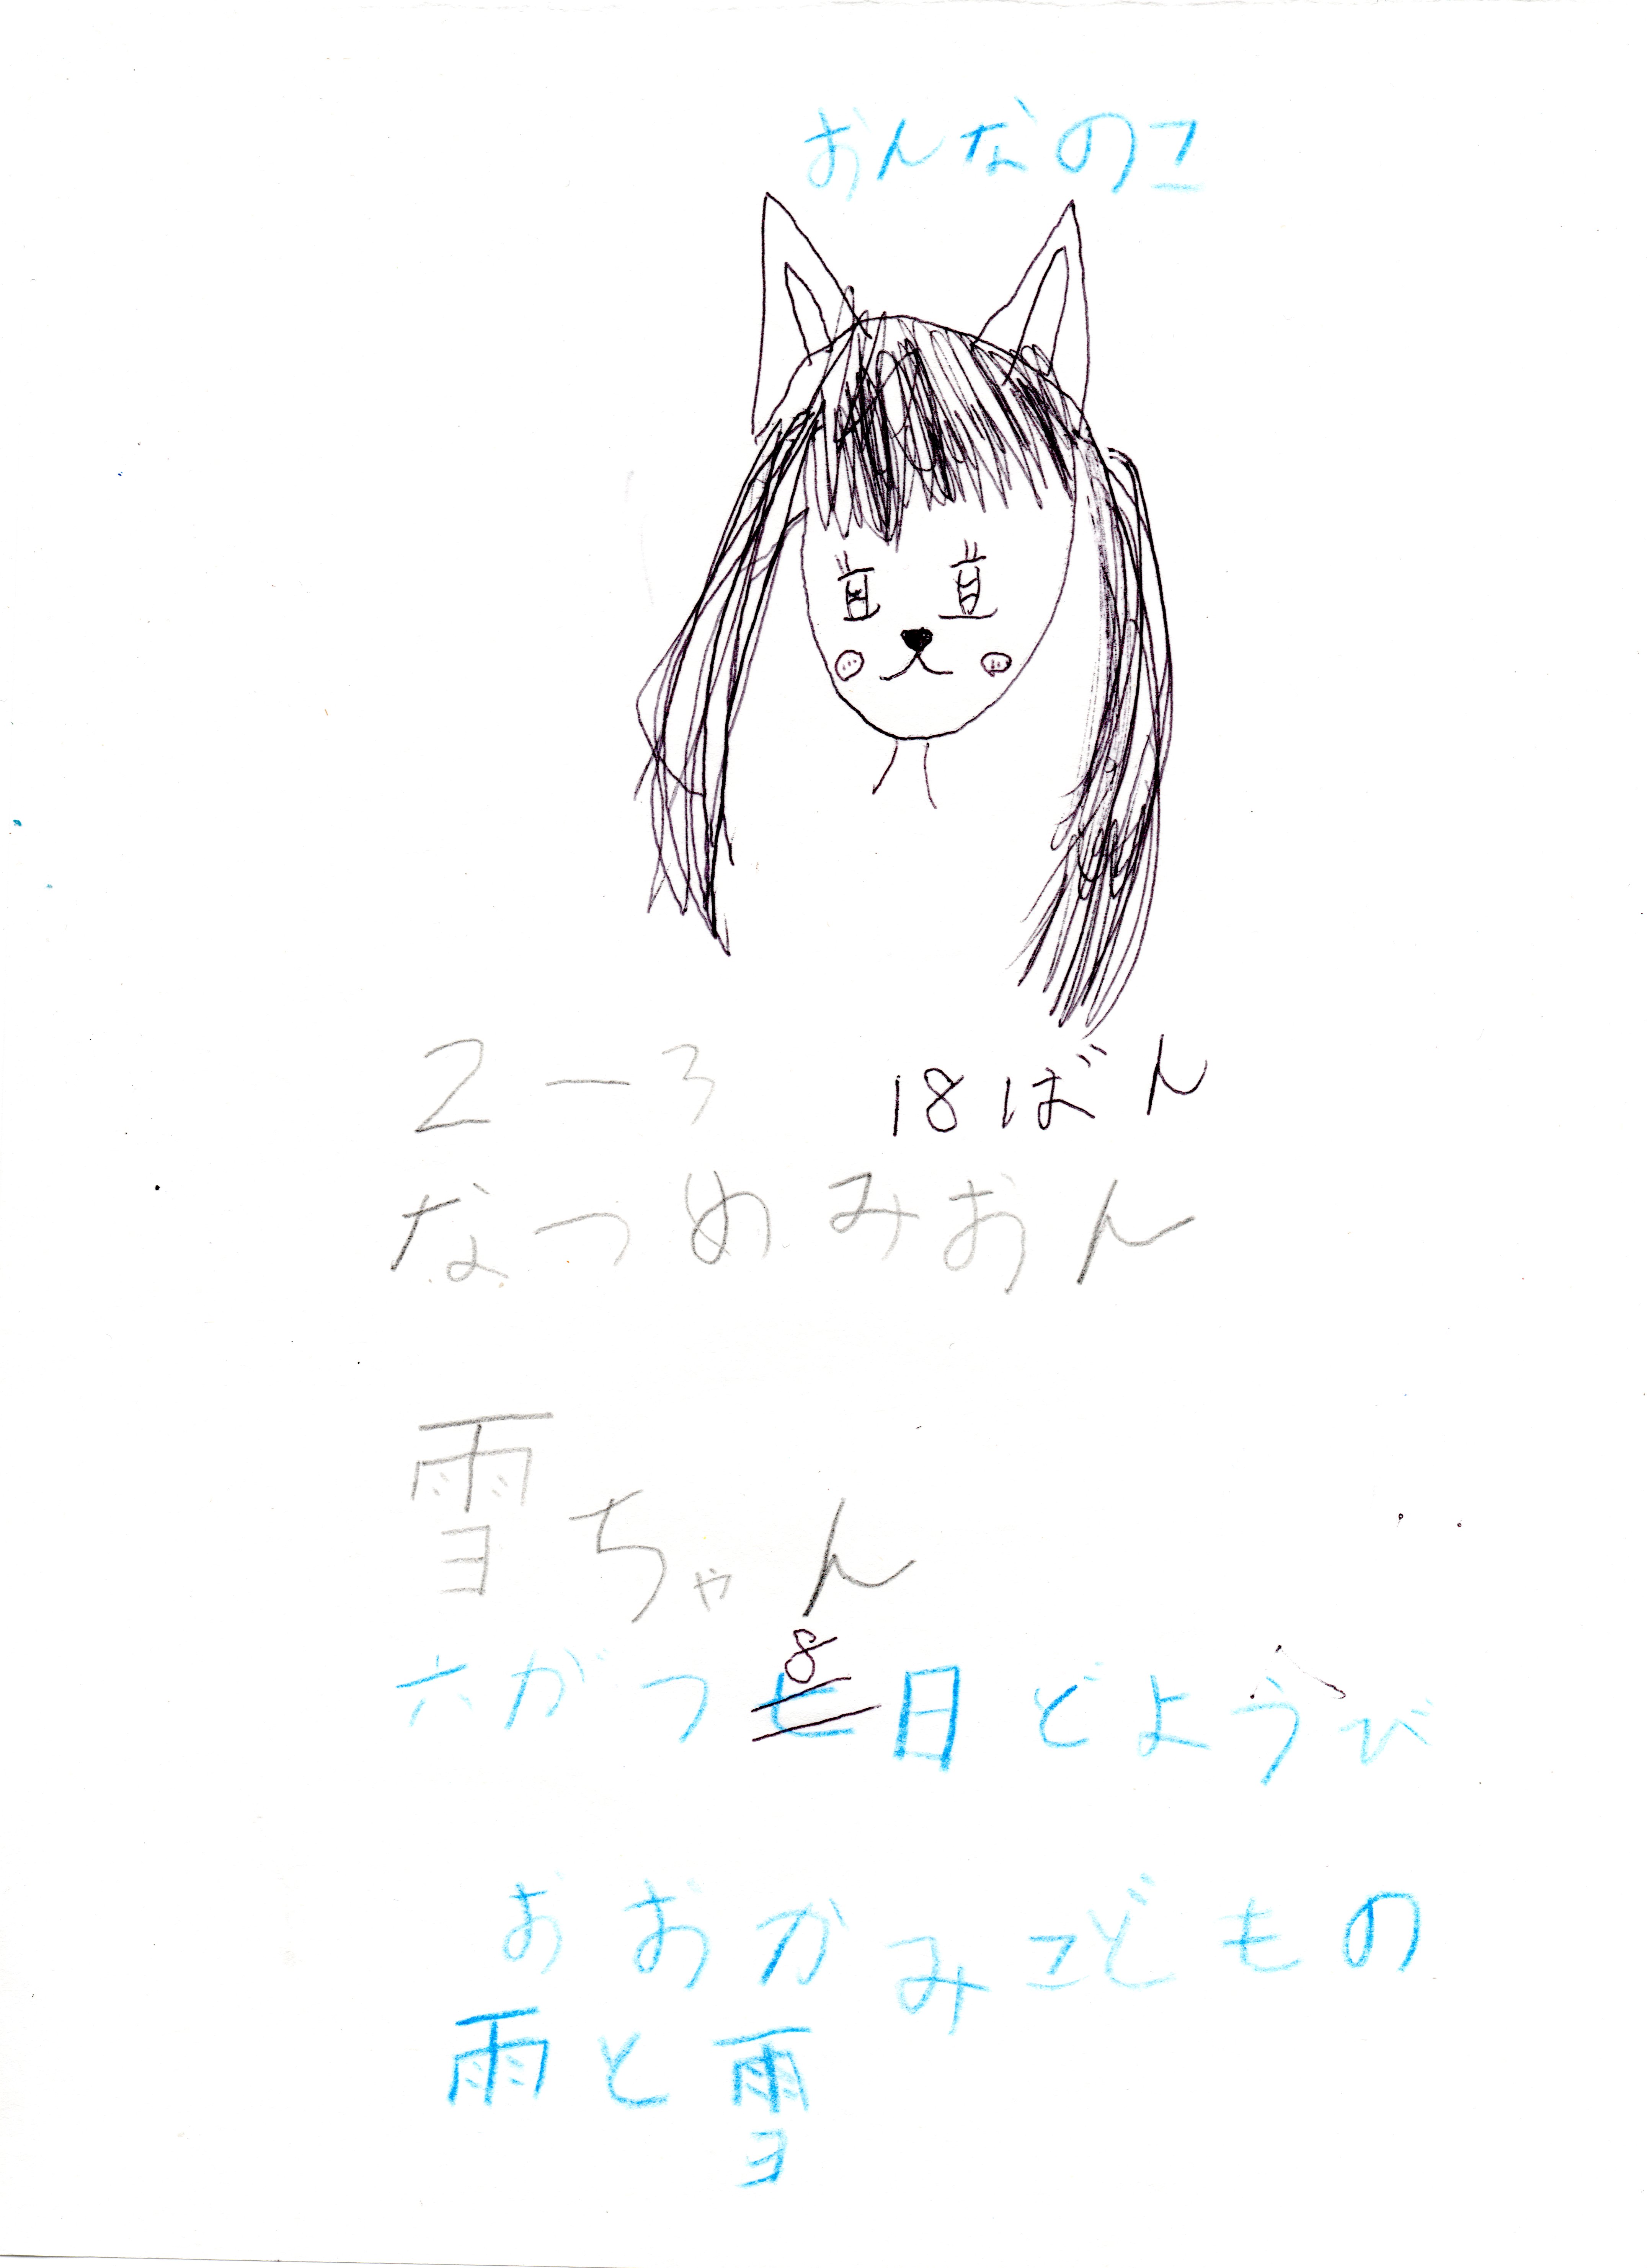 おんなのこ
2-3 18ばん
なつめみおん
雪ちゃん
8
六がつ七日どようび
おおかみこどもの
雨と雪